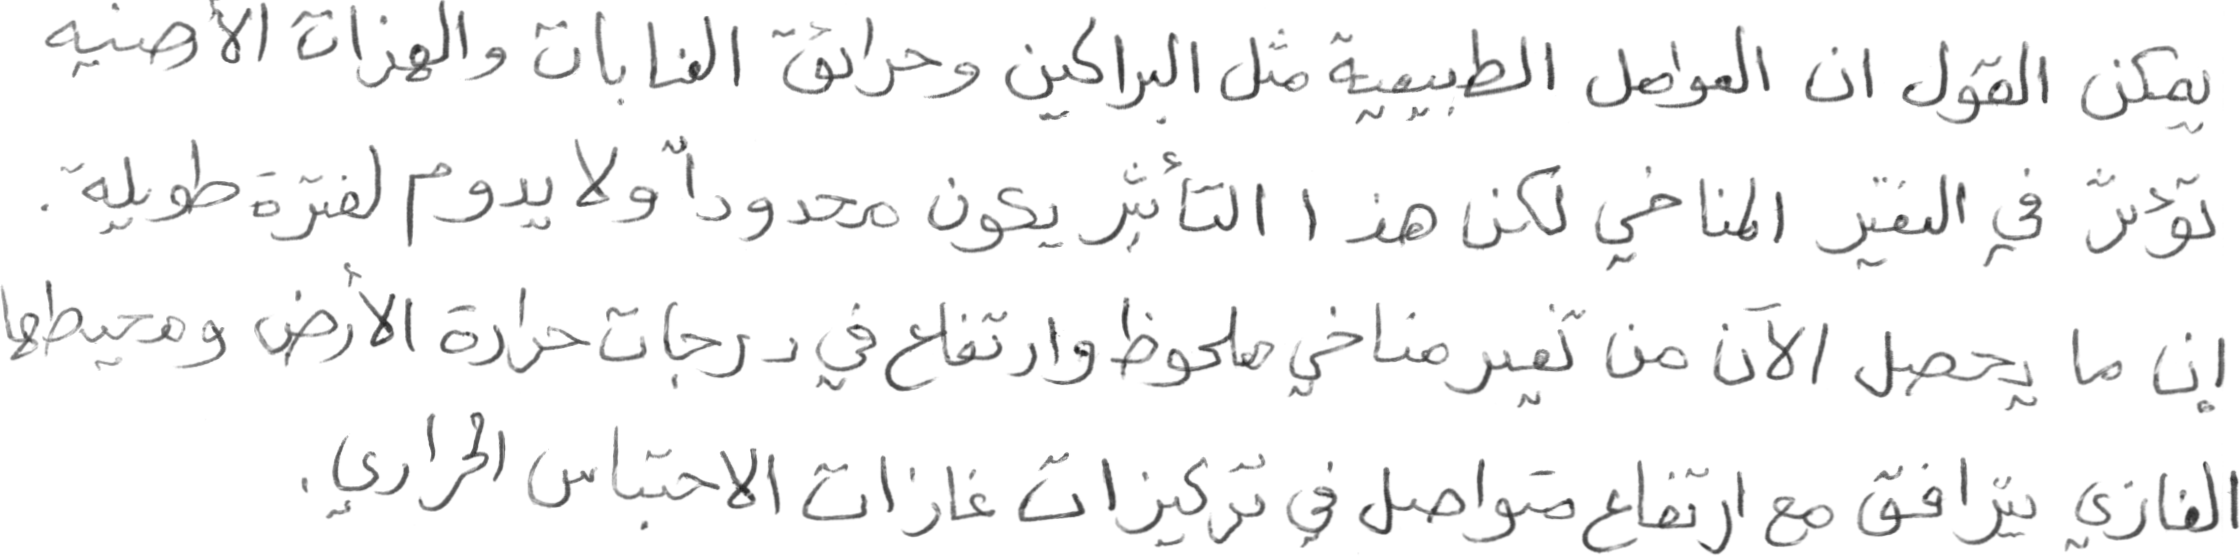 يمكن القول ان العوامل الطبيعية مثل البراكين وحرائق الغابات والهزات الأرضيه
تؤثر في التغير المناخي لكن هذا التأثير يكون محدوداً ولا يدوم لفترة طويلة.
إن ما يحصل الآن من تغير مناخي ملحوظ وارتفاع في درجات حرارة الأرض ومحيطها
الغازي يترافق مع ارتفاع متواصل في تركيزات غازات الاحتباس الحراري.